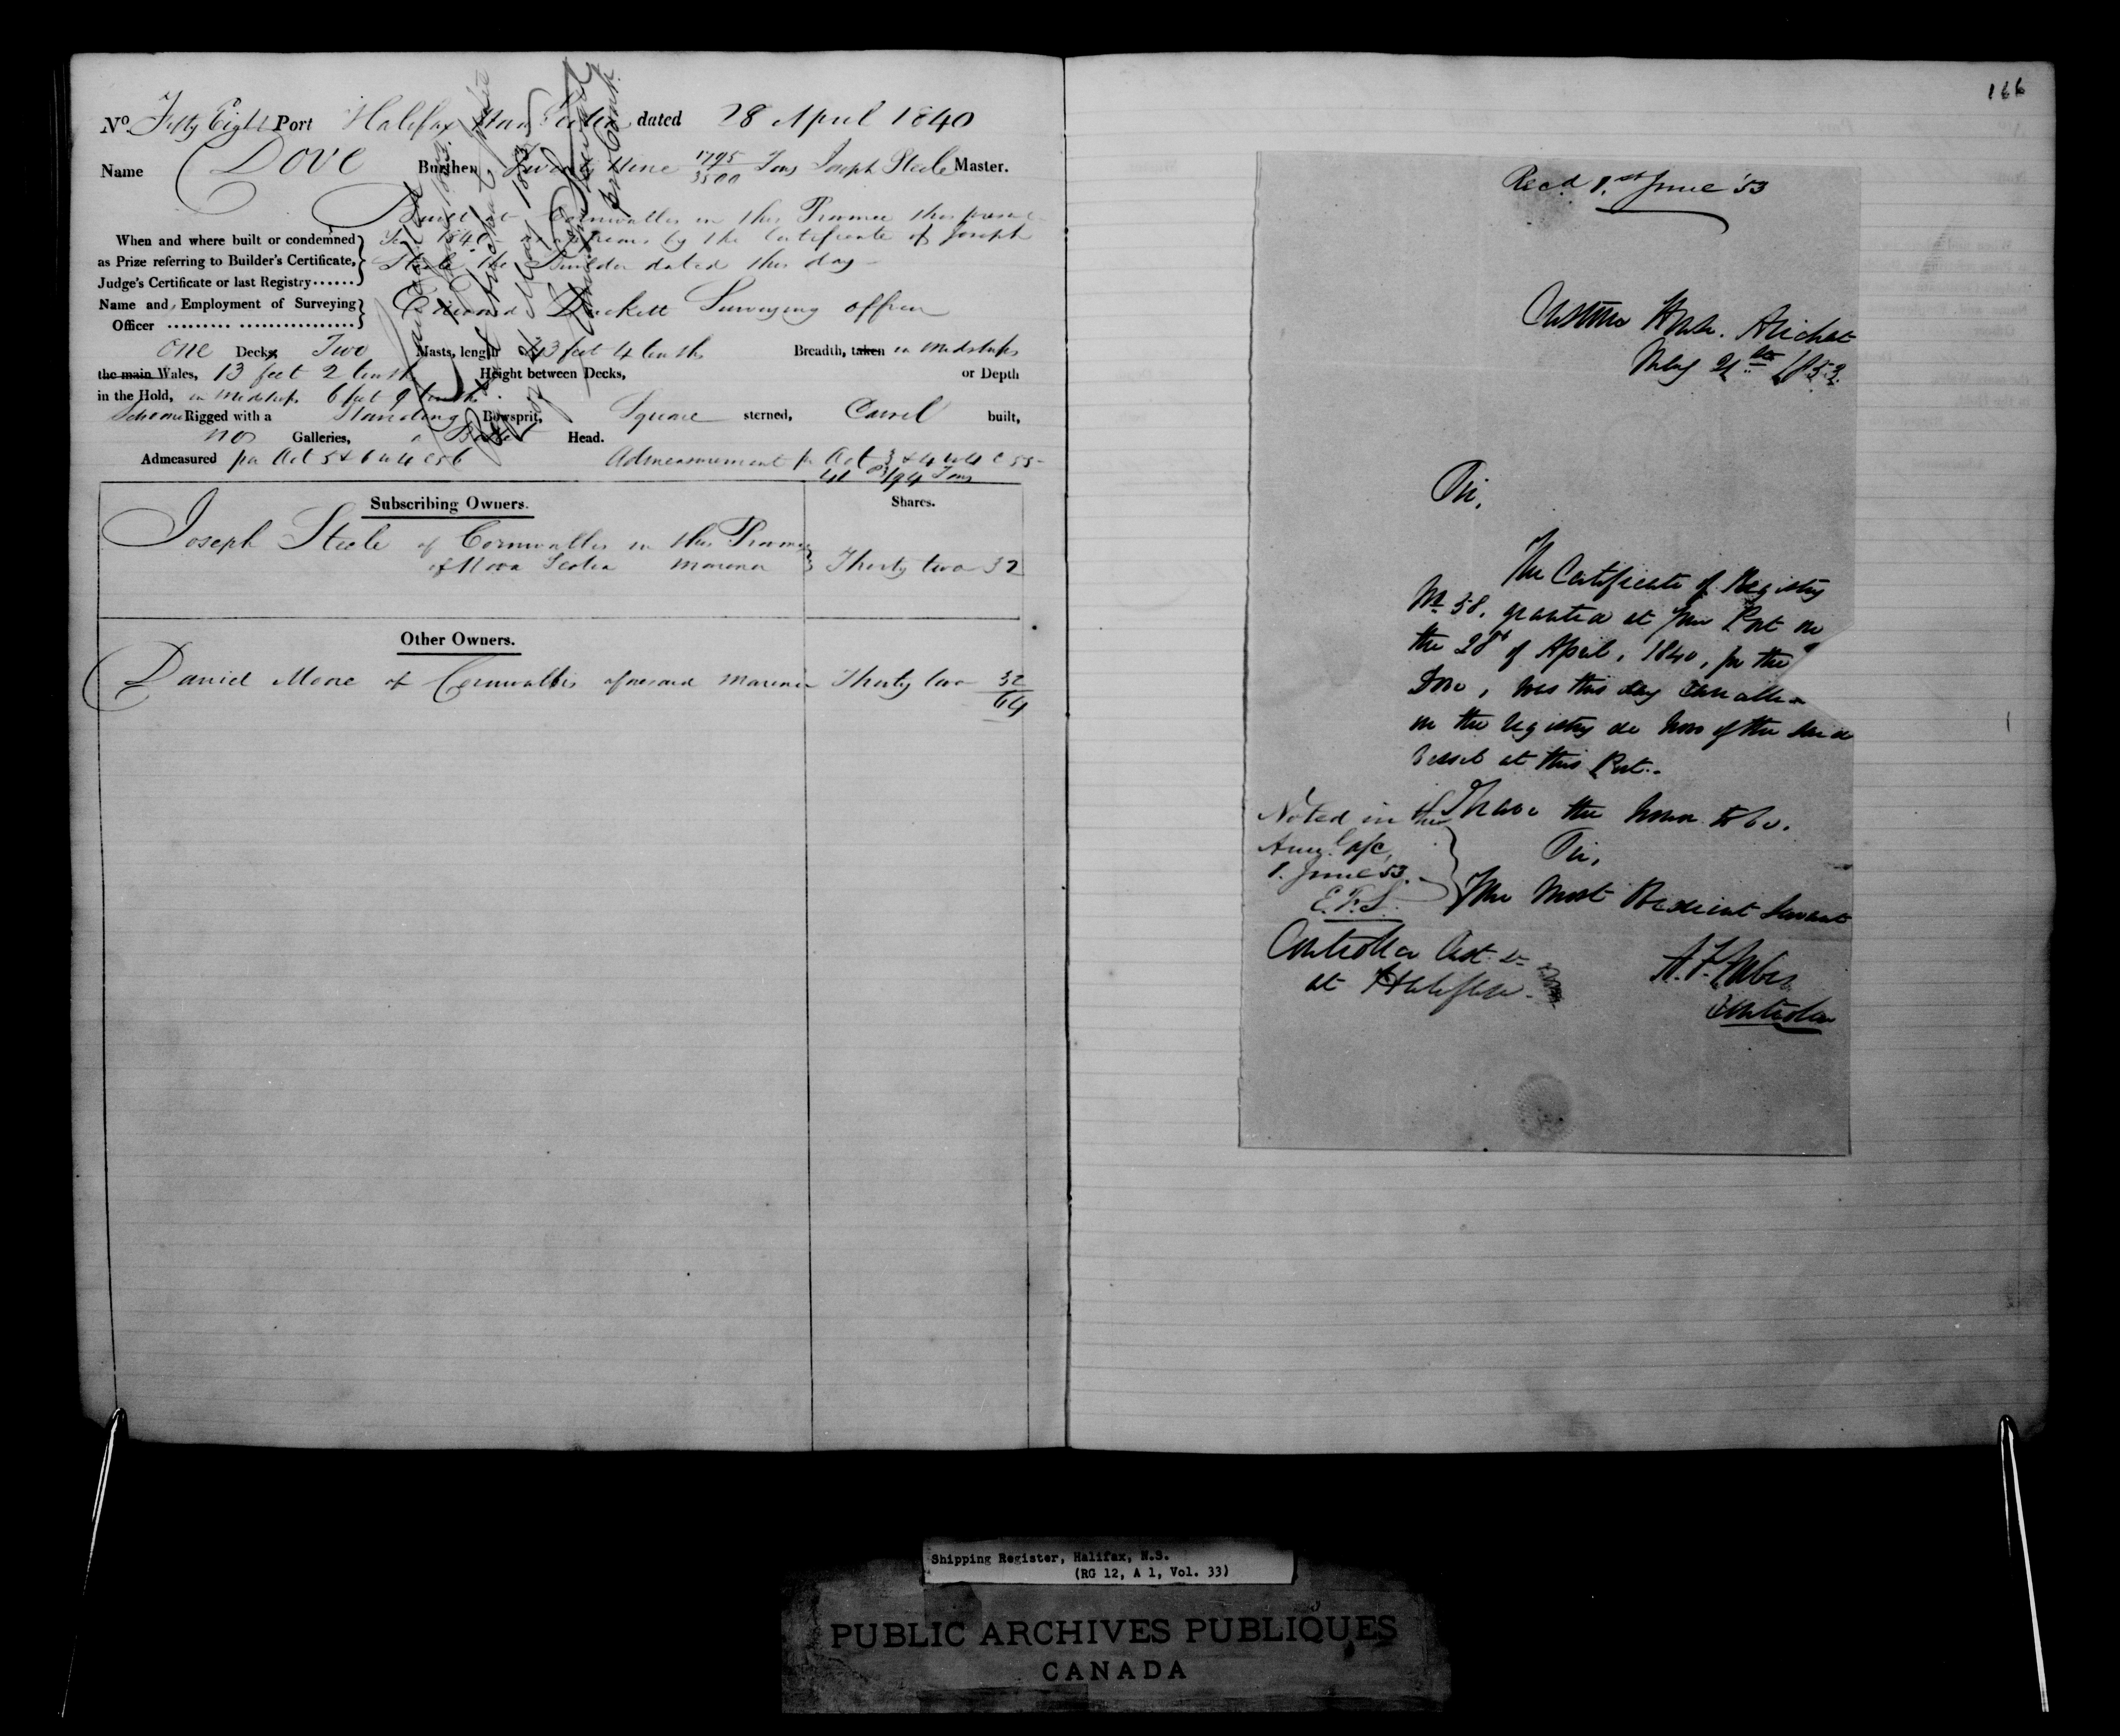 No. Fifty Eight Port Halifax Nova Scotia dated 28 April 1840
Name Dove Burthen Twenty Nine 1795/3500 Tons Joseph Steele Master.
Built at Cornwallis in this Province this present
When and where built or condemned
Year 1840 as appears by the Certificate of Joseph
as Prize referring to Builder's Certificate,
Steele the Builder dated this day
Judge's Certificate or last Registry......
Name and Employment of Surveying
Edward Duckett Surveying officer
Officer ......... ................
one Decks, Two Masts, length 43 feet 4 tenths Breadth, taken in Midships
the main Wales, 13 feet 2 tenths Height between Decks, or Depth
in the Hold, in Midships 6 feet 9 tenths
Schooner Rigged with a Standing Bowsprit, Square sterned, Carvel built,
no Galleries, Head.
Admeasured per Act 5 & 6 W 4 C 56 Admeasurement pr Act 3 & 4 W 4 C 55-
/94 Tons
Subscribing Owners.
Shares.
Joseph Steele of Cornwallis in this Province
of Nova Scotia mariner Thirty two 32
Other Owners.
Daniel Moore of Cornwallis aforesaid mariner Thirty two 32
64
166
Recd 1st June '53
Custom House. Arichat
May 21st 1853.
Sir,
The Certificate of Registry
No 58, granted at your Port on
the 28th of April, 1840, for the
Dove, was this day cancelled
on the registry de novo of the said
vessel at this Port.-
I have the honor to be.
Sir,
Your Most Obedient Servant
Noted in the
a/c,
1. June '53.
E.F.S.
Controller Cust. &c
at Halifax.
Controller
Shipping Register, Halifax, N.S.
(RG 12, A 1, Vol. 33)
PUBLIC ARCHIVES PUBLIQUES
CANADA